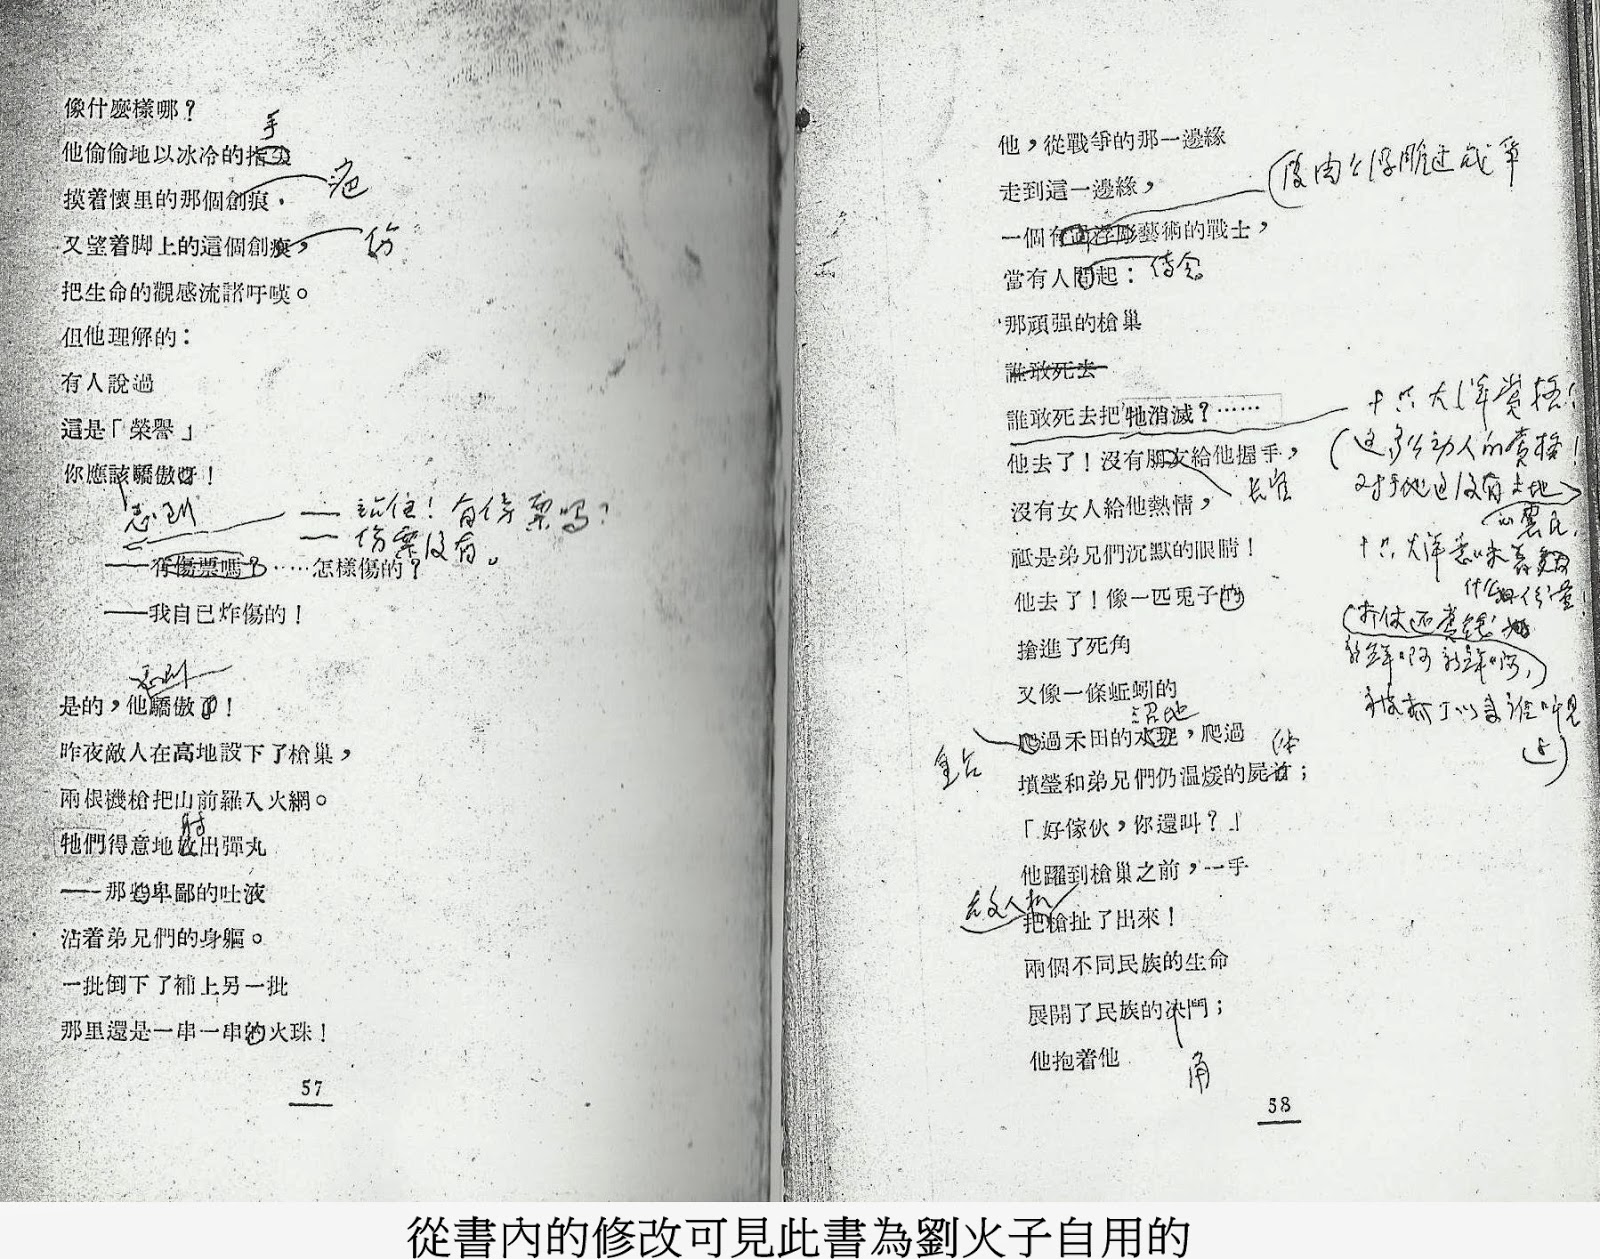 像什麽樣哪？
手
他偷偷地以冰冷的指尖
疤
摸着懷里的那個創痕．
又望着脚上的這個創痕，
伤
把生命的觀感流諸吁嘆。
但他理解的：
有人說過
這是「榮譽」
你應該驕傲呀！
感到
—站住！有伤票吗？
—伤票没有。
——有傷票嗎？……怎樣傷的？
——我自己炸傷的！
感到
是的，他驕傲了！
昨夜敵人在高地設下了槍巢，
兩根機槍把山前羅入火網。
射
牠們得意地放出彈丸
——那些卑鄙的吐液
沾着弟兄們的身軀。
一批倒下了補上另一批
那里還是一串一串的火珠！
57
他，從戰爭的那一邊緣
走到這一邊緣，
一個有着浮彫藝術的戰士，
當有人問起：
那頑强的槍巢
誰敢死去
誰敢死去把牠消滅？……
十六大洋赏格！
他去了！沒有朋友給他握手，
长官
沒有女人給他熱情，
祗是弟兄們沉默的眼睛！
他去了！像一匹兎子的
搶進了死角
又像一條蚯蚓的
沼地
爬過禾田的水池，爬過
体
墳瑩和弟兄們仍温煖的屍首；
「好傢伙，你還叫？」
他躍到槍巢之前，一手
把槍扯了出來！
兩個不同民族的生命
展開了民族的决鬥；
角
他抱着他
58
從書內的修改可見此書為劉火子自用的